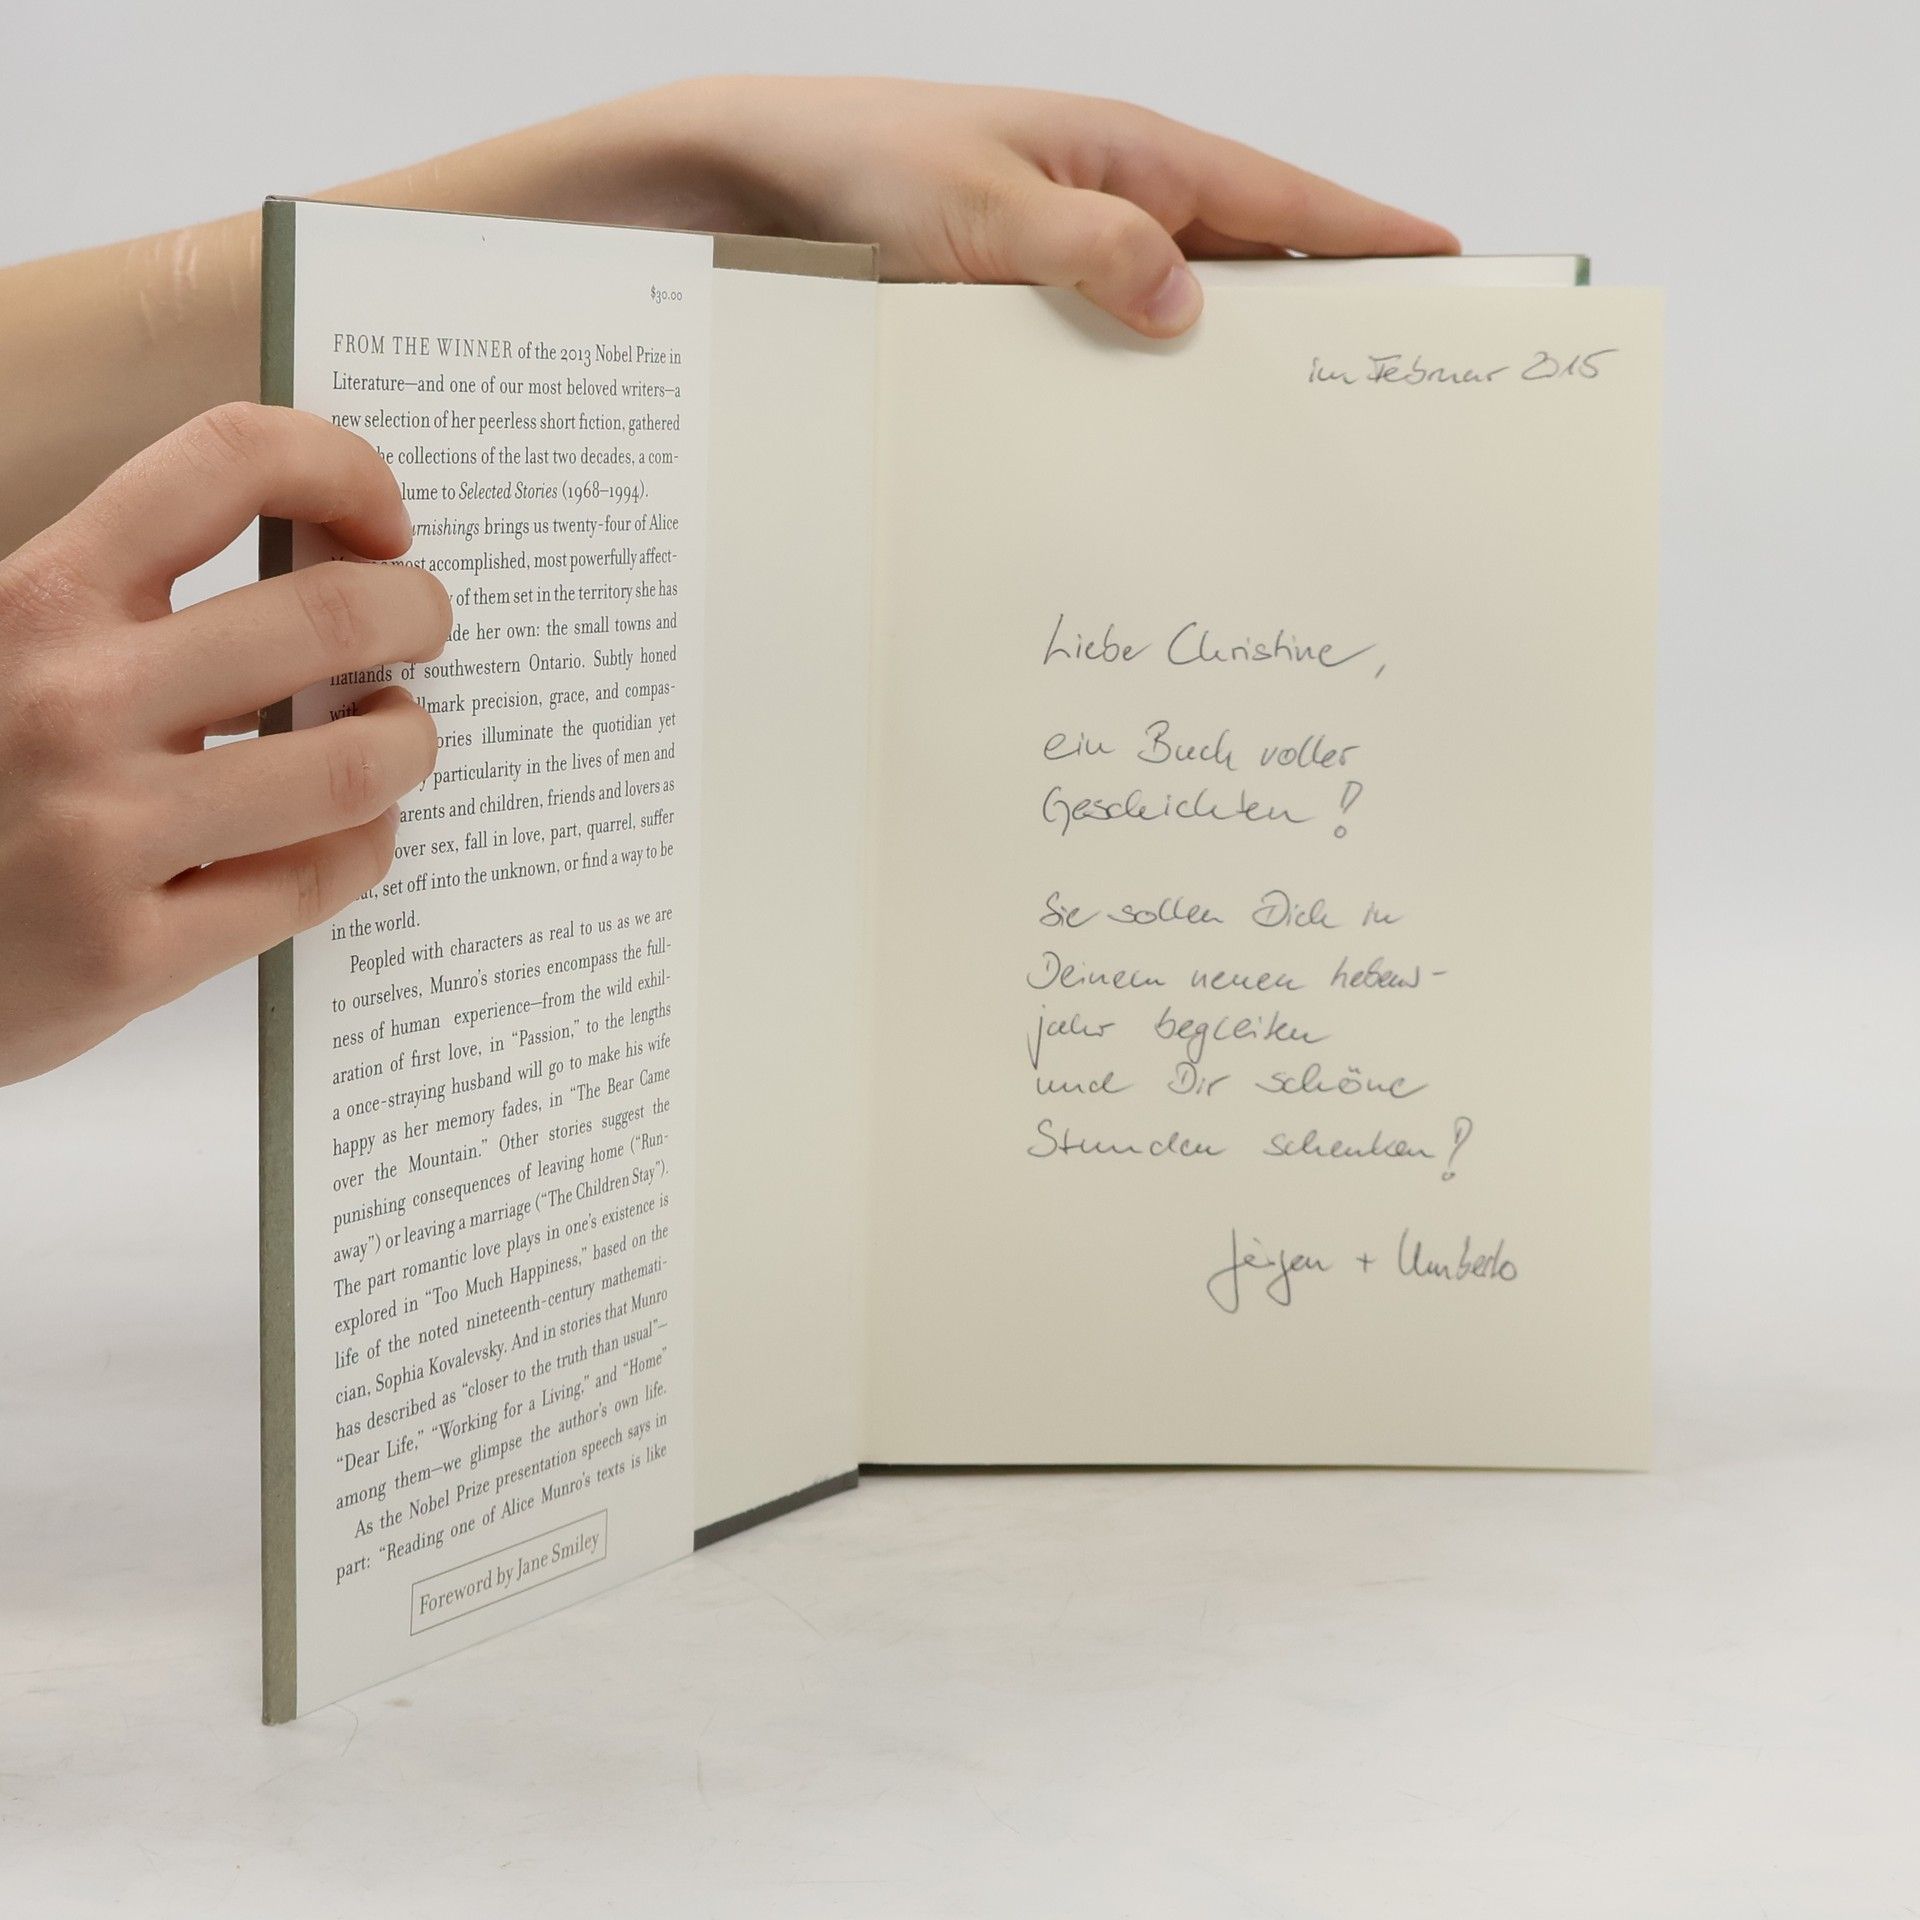 $30.00
FROM THE WINNER of the 2013 Nobel Prize in
Literature—and one of our most beloved writers—a
new selection of her peerless short fiction, gathered
he collections of the last two decades, a com-
lume to Selected Stories (1968–1994).
urnishings brings us twenty-four of Alice
most accomplished, most powerfully affect-
of them set in the territory she has
de her own: the small towns and
flatlands of southwestern Ontario. Subtly honed
with llmark precision, grace, and compas-
ories illuminate the quotidian yet
y particularity in the lives of men and
arents and children, friends and lovers as
over sex, fall in love, part, quarrel, suffer
at, set off into the unknown, or find a way to be
in the world.
Peopled with characters as real to us as we are
to ourselves, Munro's stories encompass the full-
ness of human experience—from the wild exhil-
aration of first love, in “Passion,” to the lengths
a once-straying husband will go to make his wife
happy as her memory fades, in “The Bear Came
over the Mountain.” Other stories suggest the
punishing consequences of leaving home (“Run-
away”) or leaving a marriage (“The Children Stay”).
The part romantic love plays in one's existence is
explored in “Too Much Happiness,” based on the
life of the noted nineteenth-century mathemati-
cian, Sophia Kovalevsky. And in stories that Munro
has described as “closer to the truth than usual”—
“Dear Life,” “Working for a Living,” and “Home”
among them—we glimpse the author's own life.
As the Nobel Prize presentation speech says in
part: “Reading one of Alice Munro's texts is like
Foreword by Jane Smiley
im Februar 2015
Liebe Christine,
ein Buch voller
Geschichten!
Sie sollen Dich in
Deinem neuen Lebens-
jahr begleiten
und Dir schöne
Stunden schenken!
Jürgen + Umberto